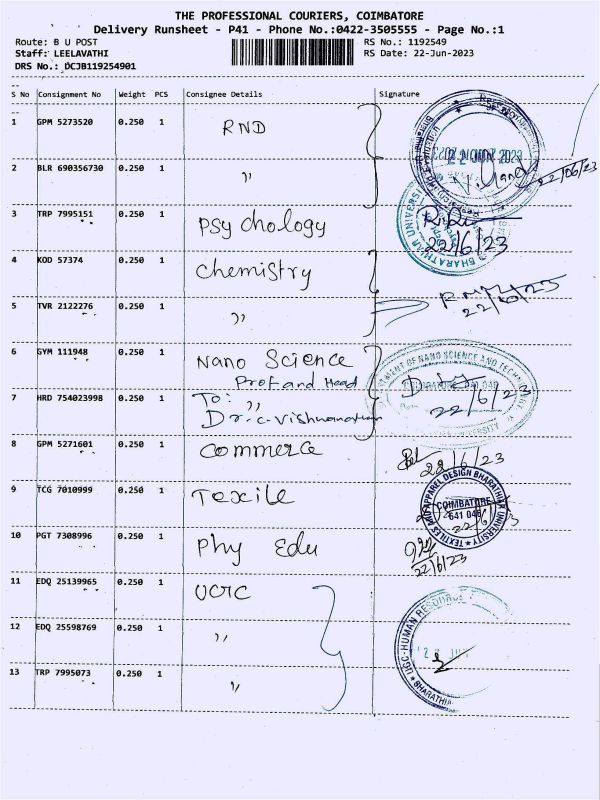 THE PROFESSIONAL COURIERS, COIMBATORE
Delivery Runsheet - P41 - Phone No.:0422-3505555 - Page No.:1
Route: B U POST
Staff: LEELAVATHI
DRS No.: DCJB119254901
RS No.: 1192549
RS Date: 22-Jun-2023
S No Consignment No Weight PCS Consignee Details Signature
1 GPM 5273520 0.250 1 RND
2 BLR 690356730 0.250 1 "
22/06/23
3 TRP 7995151 0.250 1 Psychology
22/6/23
BHARATHIAR UNIVERSITY
4 KOD 57374 0.250 1 Chemistry
5 TVR 2122276 0.250 1 "
22/6/23
6 GYM 111948 0.250 1 Nano Science
Prof and Head
DEPARTMENT OF NANO SCIENCE AND TECHNOLOGY
7 HRD 754023998 0.250 1 To: "
Dr. C. Vishwanathan
22/6/23
8 GPM 5271601 0.250 1 Commerce
22/6/23
9 TCG 7010999 0.250 1 Texile
TEXTILES AND APPAREL DESIGN BHARATHIAR UNIVERSITY
COIMBATORE
641 046
22/6/23
10 PGT 7308996 0.250 1 Phy Edu
22/6/23
11 EDQ 25139965 0.250 1 UGC
12 EDQ 25598769 0.250 1 "
13 TRP 7995073 0.250 1 "
UGC-HUMAN RESOURCE